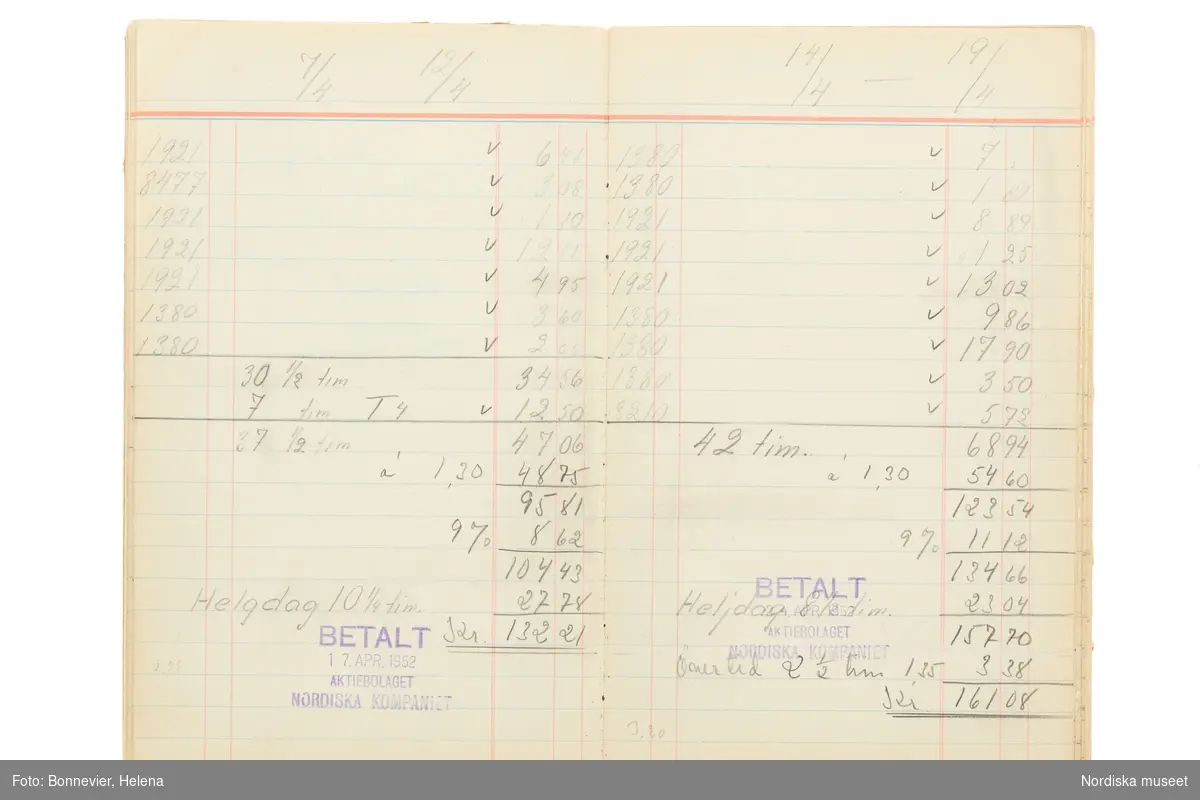 7/4 12/4
1921 v 6 41
8477 v 3 08
1921 v 1 10
1921 v
1921 v 4 95
1380 v 3 60
1380 v 2
30 1/2 tim 34 56
7 tim T 4 v 12 50
37 1/2 tim 47 06
á 1,30 48 75
95 81
9 % 8 62
104 43
Helgdag 10 1/2 tim. 27 78
Kr. 132 21
BETALT
17. APR. 1952
AKTIEBOLAGET
NORDISKA KOMPANIET
14/4 — 19/4
1380 v 7
1380 v 1
1921 v 8 89
1921 v 1 25
1921 v 13 02
1380 v 9 86
1380 v 17 90
1380 v 3 50
8210 v 5 72
42 tim. 68 94
á 1,30 54 60
123 54
9 % 11 12
134 66
Heljdag 8 1/2 tim. 23 04
157 70
Övertid 2 1/2 tim 1 35 3 38
Kr. 161 08
BETALT
APR. 1952
AKTIEBOLAGET
NORDISKA KOMPANIET
3,80
Foto: Bonnevier, Helena
Nordiska museet